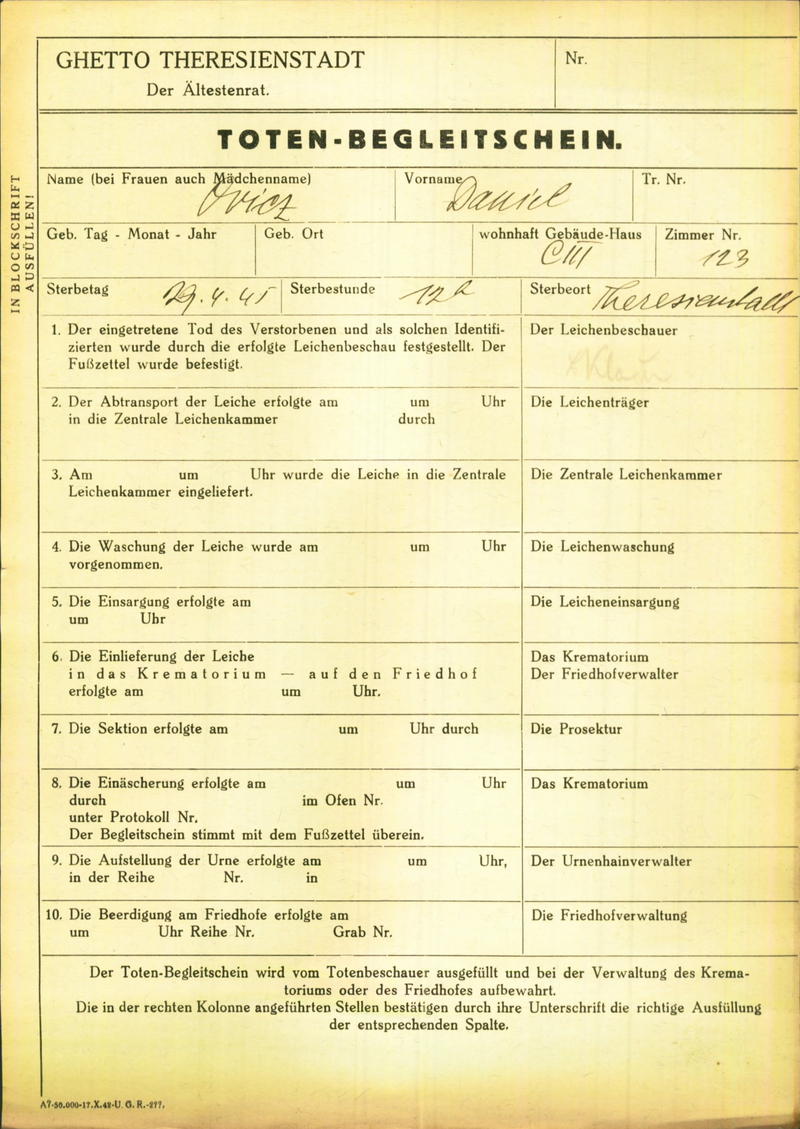 GHETTO THERESIENSTADT
Der Ältestenrat.
Nr.
TOTEN-BEGLEITSCHEIN.
IN BLOCKSCHRIFT
AUSFÜLLEN!
Name (bei Frauen auch Mädchenname)
Ovicz
Vorname
Daniel
Tr. Nr.
Geb. Tag - Monat - Jahr
Geb. Ort
wohnhaft Gebäude-Haus
C III
Zimmer Nr.
123
Sterbetag 29.4.45
Sterbestunde 12 h
Sterbeort Theresienstadt
1. Der eingetretene Tod des Verstorbenen und als solchen Identifi-
zierten wurde durch die erfolgte Leichenbeschau festgestellt. Der
Fußzettel wurde befestigt.
Der Leichenbeschauer
2. Der Abtransport der Leiche erfolgte am um Uhr
in die Zentrale Leichenkammer durch
Die Leichenträger
3. Am um Uhr wurde die Leiche in die Zentrale
Leichenkammer eingeliefert.
Die Zentrale Leichenkammer
4. Die Waschung der Leiche wurde am um Uhr
vorgenommen.
Die Leichenwaschung
5. Die Einsargung erfolgte am
um Uhr
Die Leicheneinsargung
6. Die Einlieferung der Leiche
in das Krematorium — auf den Friedhof
erfolgte am um Uhr.
Das Krematorium
Der Friedhofverwalter
7. Die Sektion erfolgte am um Uhr durch
Die Prosektur
8. Die Einäscherung erfolgte am um Uhr
durch im Ofen Nr.
unter Protokoll Nr.
Der Begleitschein stimmt mit dem Fußzettel überein.
Das Krematorium
9. Die Aufstellung der Urne erfolgte am um Uhr,
in der Reihe Nr. in
Der Urnenhainverwalter
10. Die Beerdigung am Friedhofe erfolgte am
um Uhr Reihe Nr. Grab Nr.
Die Friedhofverwaltung
Der Toten-Begleitschein wird vom Totenbeschauer ausgefüllt und bei der Verwaltung des Krema-
toriums oder des Friedhofes aufbewahrt.
Die in der rechten Kolonne angeführten Stellen bestätigen durch ihre Unterschrift die richtige Ausfüllung
der entsprechenden Spalte.